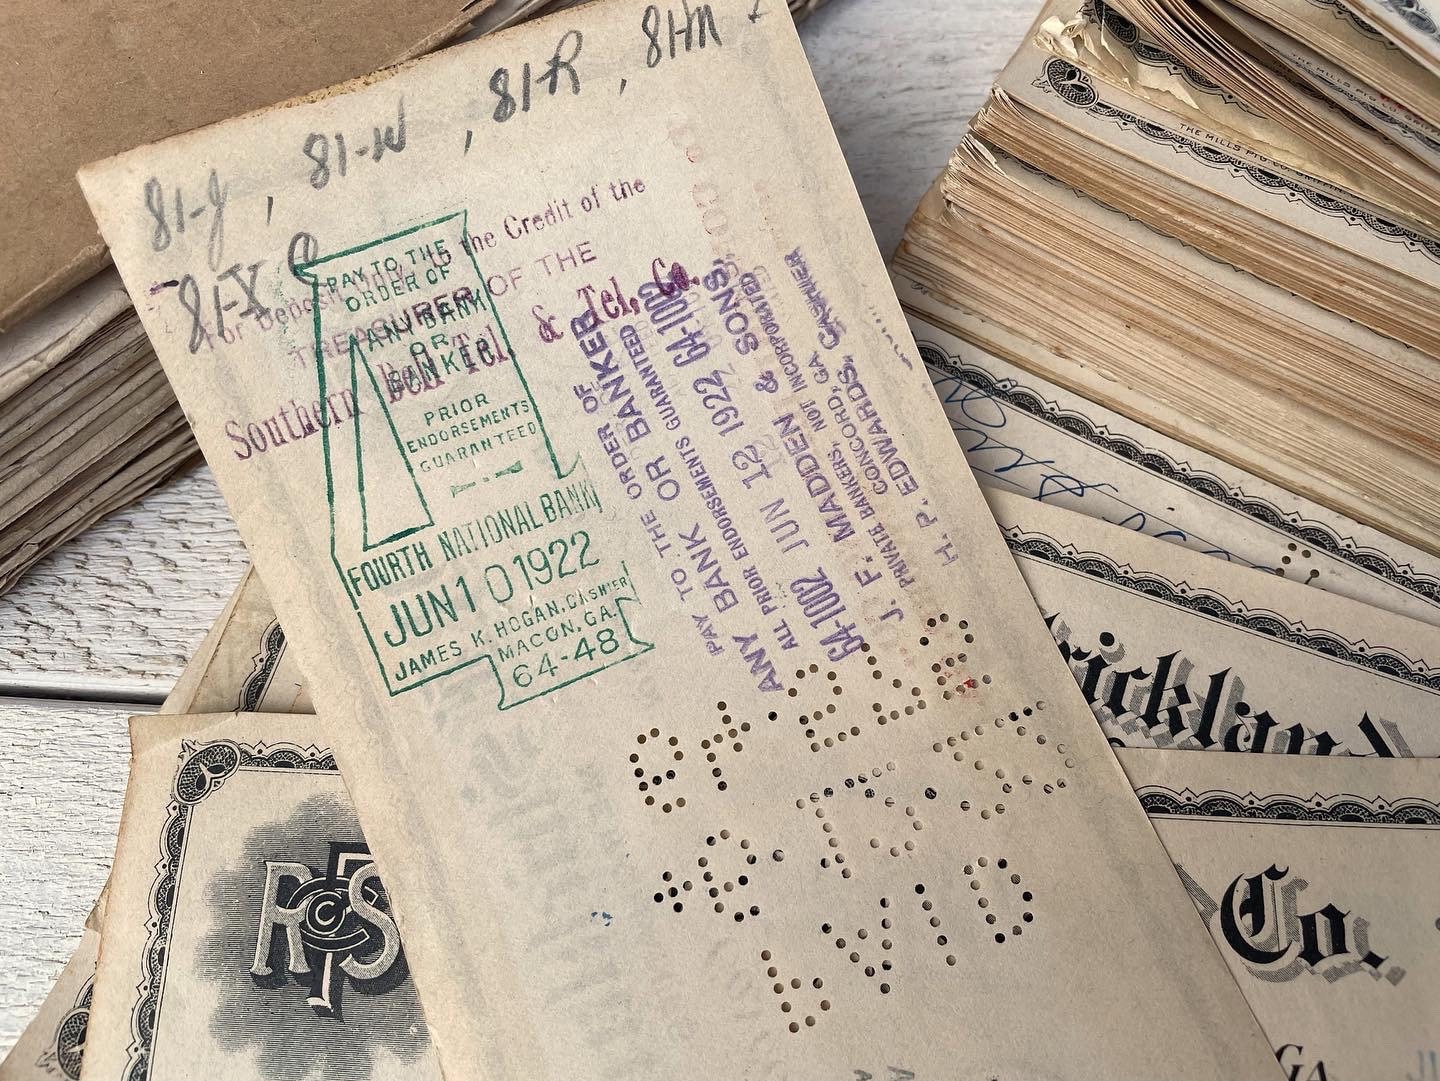 81-J, 81-W, 81-R, 81HM
81-X
For Deposit to the Credit of the
TREASURER OF THE
Southern Bell Tel. & Tel. Co.
PAY TO THE
ORDER OF
ANY BANK
OR
BANKER
PRIOR
ENDORSEMENTS
GUARANTEED
FOURTH NATIONAL BANK
JUN 10 1922
JAMES K. HOGAN, CASHIER
MACON, GA.
64-48
PAY TO THE ORDER OF
ANY BANK OR BANKER
ALL PRIOR ENDORSEMENTS GUARANTEED
64-1002 JUN 12 1922 64-1002
J. F. MADDEN & SONS
PRIVATE BANKERS, NOT INCORPORATED
CONCORD, GA.
H. P. EDWARDS, CASHIER
PAID
THE MILLS PTG CO.
THE MILLS PTG CO. GRIFFIN
rickland
RTS
Co.
GA